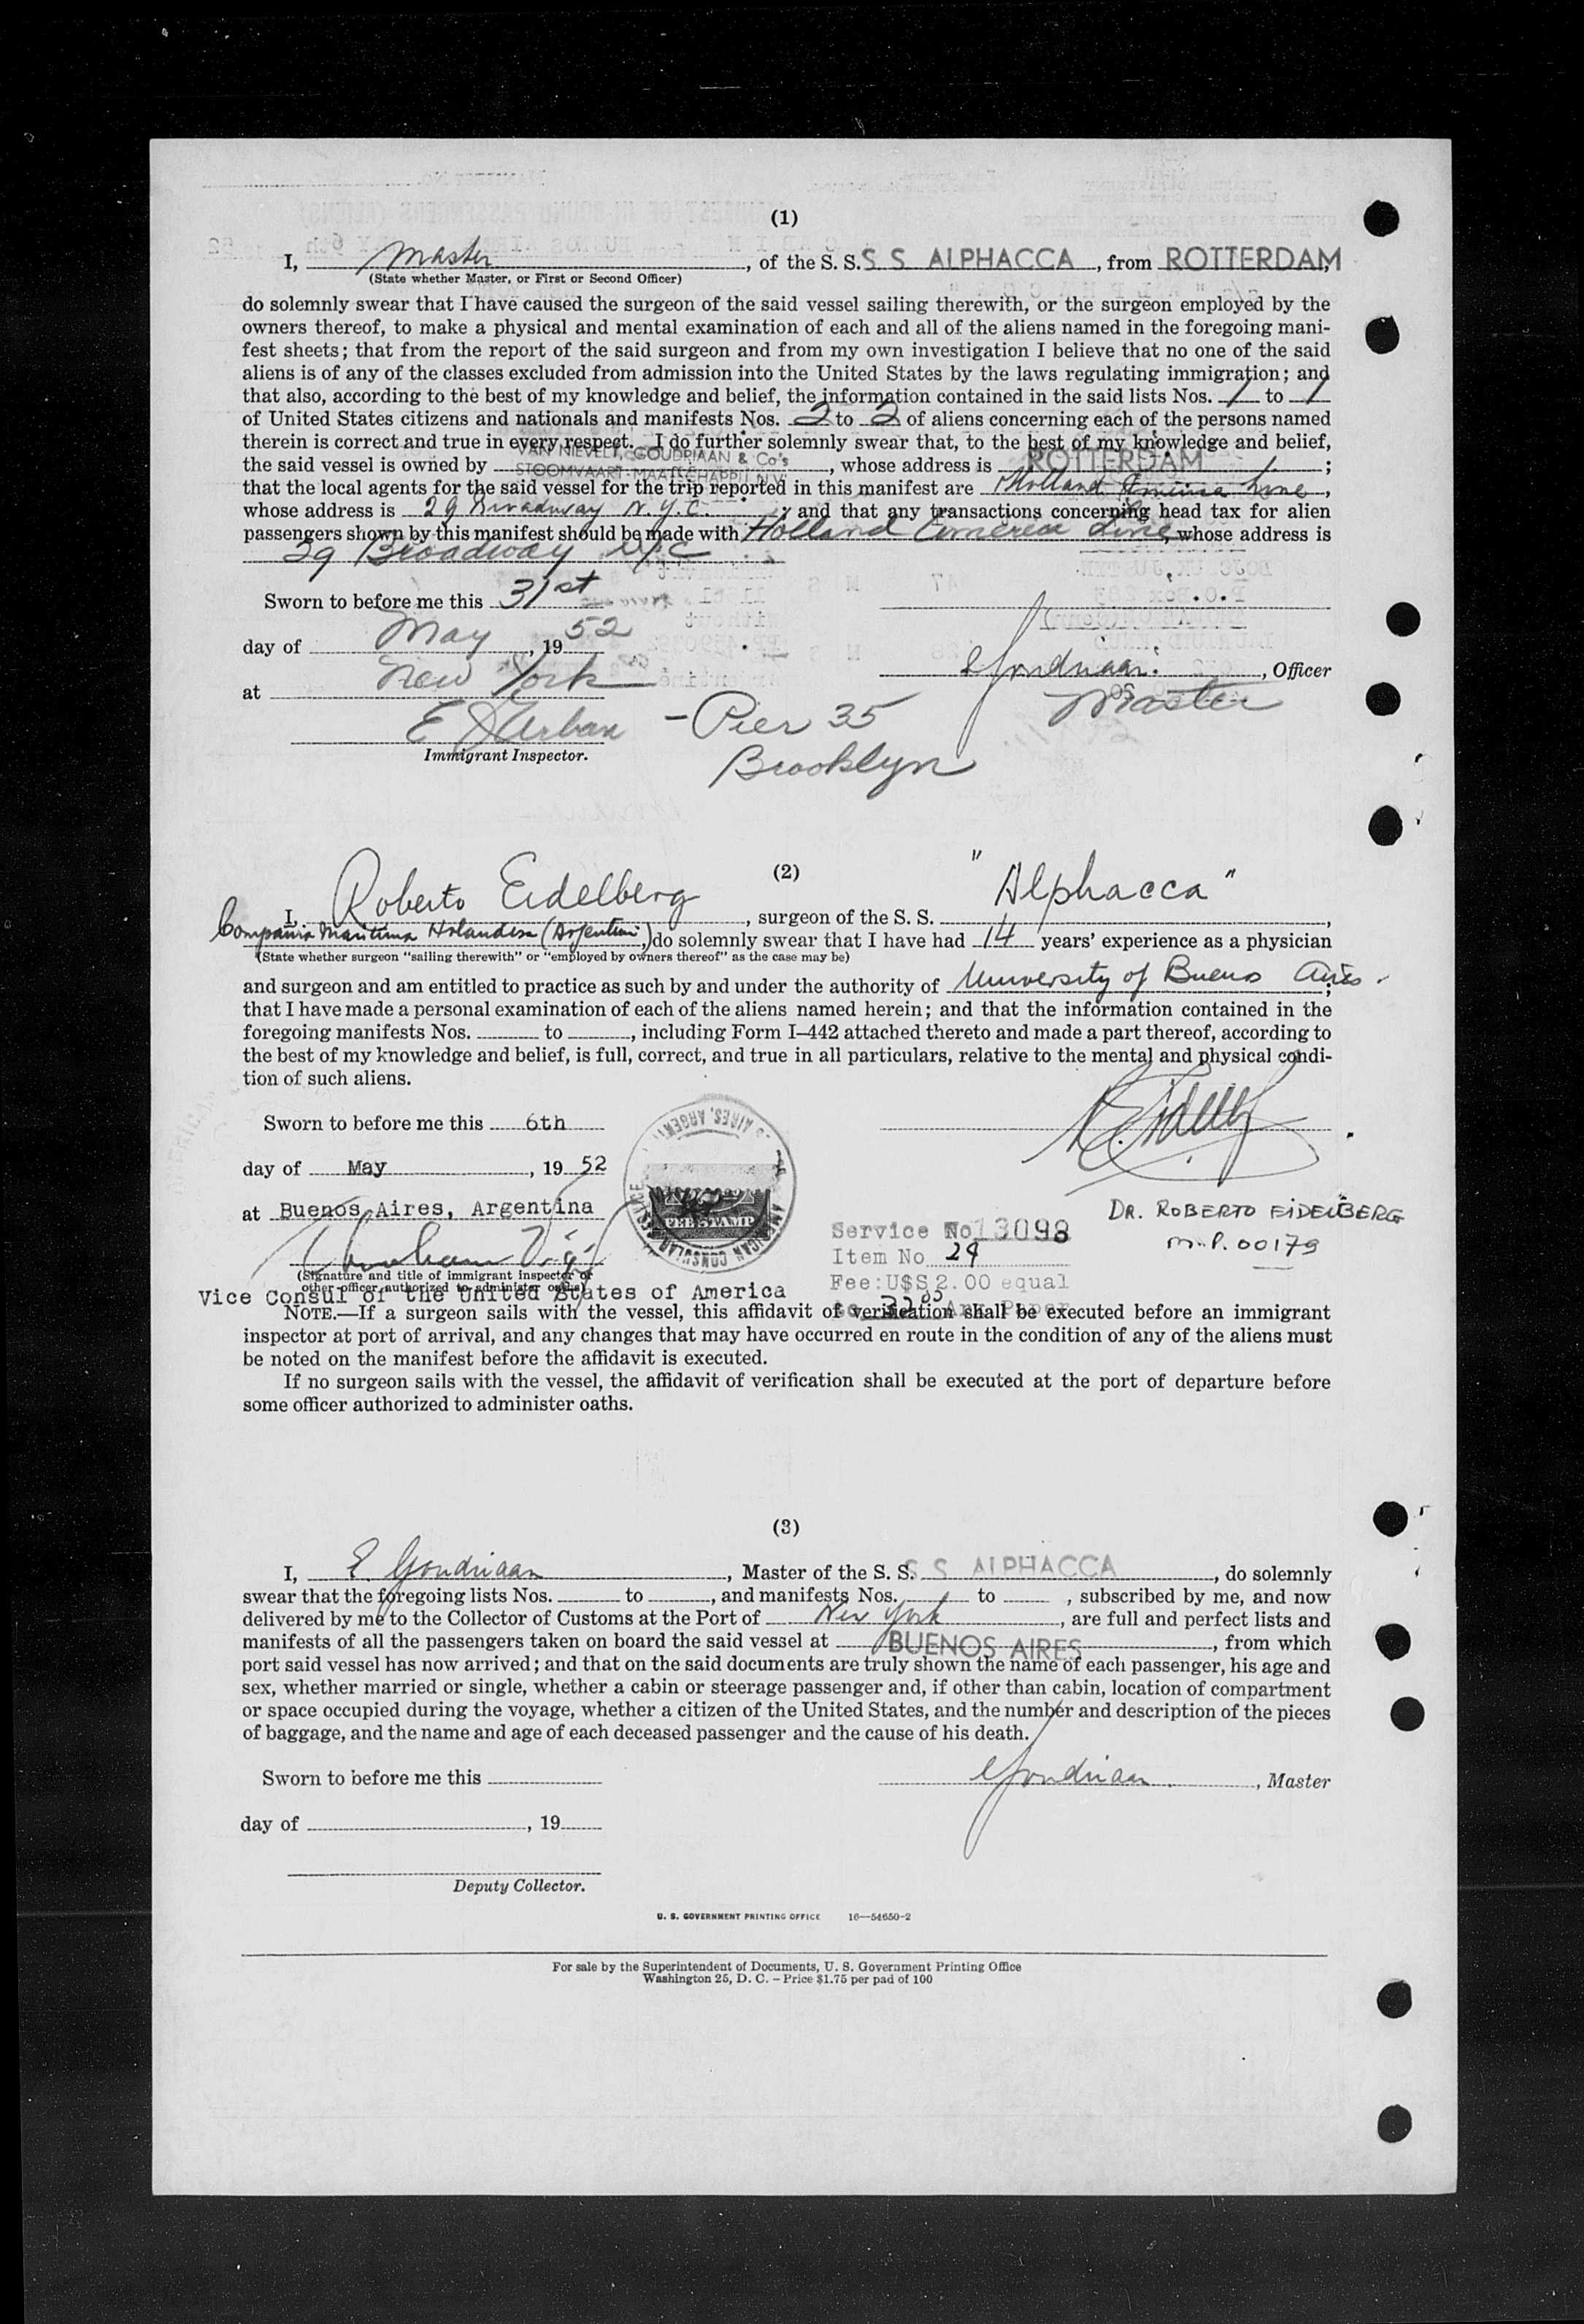 (1)
I, Master, of the S. S. S S ALPHACCA, from ROTTERDAM,
(State whether Master, or First or Second Officer)
do solemnly swear that I have caused the surgeon of the said vessel sailing therewith, or the surgeon employed by the
owners thereof, to make a physical and mental examination of each and all of the aliens named in the foregoing mani-
fest sheets; that from the report of the said surgeon and from my own investigation I believe that no one of the said
aliens is of any of the classes excluded from admission into the United States by the laws regulating immigration; and
that also, according to the best of my knowledge and belief, the information contained in the said lists Nos. 1 to 1
of United States citizens and nationals and manifests Nos. 2 to 2 of aliens concerning each of the persons named
therein is correct and true in every respect. I do further solemnly swear that, to the best of my knowledge and belief,
VAN NIEVELT, GOUDRIAAN & Co's
the said vessel is owned by STOOMVAART-MAATSCHAPPIJ N.V., whose address is ROTTERDAM;
that the local agents for the said vessel for the trip reported in this manifest are Holland America Line,
whose address is 29 Broadway N.Y.C.; and that any transactions concerning head tax for alien
passengers shown by this manifest should be made with Holland America Line, whose address is
29 Broadway NYC
Sworn to before me this 31st
day of May, 1952
at New York
Goudriaan., Officer
Master
E Urban - Pier 35
Immigrant Inspector.
Brooklyn
(2)
I, Roberto Eidelberg, surgeon of the S. S. "Alphacca",
Compañia Maritima Holandesa (Argentina,) do solemnly swear that I have had 14 years' experience as a physician
(State whether surgeon "sailing therewith" or "employed by owners thereof" as the case may be)
and surgeon and am entitled to practice as such by and under the authority of University of Buenos Aires;
that I have made a personal examination of each of the aliens named herein; and that the information contained in the
foregoing manifests Nos. to , including Form I-442 attached thereto and made a part thereof, according to
the best of my knowledge and belief, is full, correct, and true in all particulars, relative to the mental and physical condi-
tion of such aliens.
Sworn to before me this 6th
day of May, 1952
at Buenos Aires, Argentina
AMERICAN CONSULAR SERVICE
FEE STAMP
DR. ROBERTO EIDELBERG
M.P. 00179
Service No 13098
Item No 24
Fee: U$S 2.00 equal
(Signature and title of immigrant inspector or
other officer authorized to administer oaths)
Vice Consul of the United States of America
NOTE.—If a surgeon sails with the vessel, this affidavit of verification shall be executed before an immigrant
inspector at port of arrival, and any changes that may have occurred en route in the condition of any of the aliens must
be noted on the manifest before the affidavit is executed.
If no surgeon sails with the vessel, the affidavit of verification shall be executed at the port of departure before
some officer authorized to administer oaths.
(3)
I, E. Goudriaan, Master of the S. S. S S ALPHACCA, do solemnly
swear that the foregoing lists Nos. to , and manifests Nos. to , subscribed by me, and now
delivered by me to the Collector of Customs at the Port of New York, are full and perfect lists and
manifests of all the passengers taken on board the said vessel at BUENOS AIRES, from which
port said vessel has now arrived; and that on the said documents are truly shown the name of each passenger, his age and
sex, whether married or single, whether a cabin or steerage passenger and, if other than cabin, location of compartment
or space occupied during the voyage, whether a citizen of the United States, and the number and description of the pieces
of baggage, and the name and age of each deceased passenger and the cause of his death.
Sworn to before me this
Goudriaan., Master
day of , 19
Deputy Collector.
U. S. GOVERNMENT PRINTING OFFICE 16—54650-2
For sale by the Superintendent of Documents, U. S. Government Printing Office
Washington 25, D. C. - Price $1.75 per pad of 100